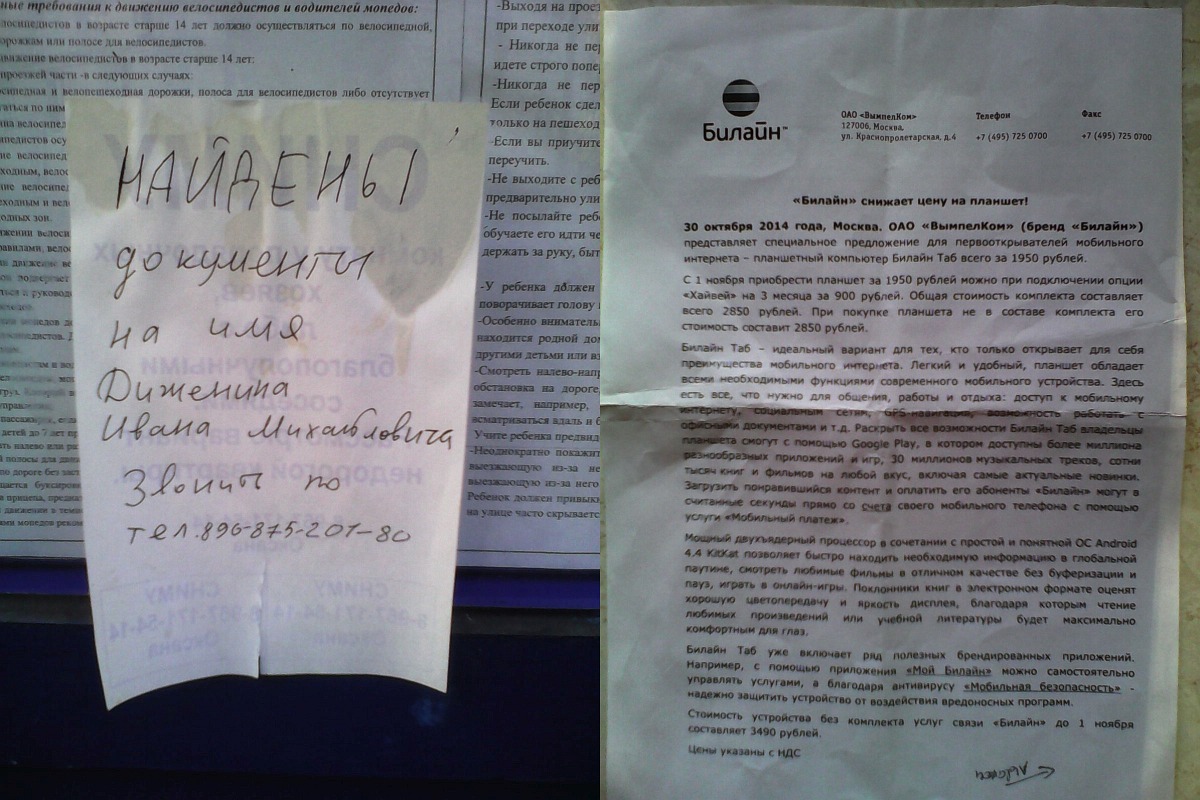 ные требования к движению велосипедистов и водителей мопедов:
лосипедистов в возрасте старше 14 лет должно осуществляться по велосипедной,
орожкам или полосе для велосипедистов.
движение велосипедистов в возрасте старше 14 лет:
проезжей части -в следующих случаях:
сипедная и велопешеходная дорожки, полоса для велосипедистов либо отсутствует
НАЙДЕНЫ
документы
на имя
Диженина
Ивана Михайловича
Звонить по
тел.896-875-201-80
-Выходя на проез
при переходе ули
- Никогда не пер
идете строго попер
-Никогда не пер
Если ребенок сдел
только на пешеход
-Если вы приучите
переучить.
-Не выходите с реб
предварительно ули
-Не посылайте ребе
обучаете его идти че
держать за руку, быт
-У ребенка должен
поворачивает голову
-Особенно внимательн
находится родной дом
другими детьми или вз
-Смотреть налево-напр
обстановка на дороге,
замечает, например,
всматриваться вдаль и б
Учите ребенка предвид
-Неоднократно покажит
выезжающую из-за не
выезжающую из-за него
Ребенок должен привыкн
на улице часто скрывается
Билайн™
ОАО «ВымпелКом»
127006, Москва,
ул. Краснопролетарская, д.4
Телефон
+7 (495) 725 0700
Факс
+7 (495) 725 0700
«Билайн» снижает цену на планшет!
30 октября 2014 года, Москва. ОАО «ВымпелКом» (бренд «Билайн»)
представляет специальное предложение для первооткрывателей мобильного
интернета – планшетный компьютер Билайн Таб всего за 1950 рублей.
С 1 ноября приобрести планшет за 1950 рублей можно при подключении опции
«Хайвей» на 3 месяца за 900 рублей. Общая стоимость комплекта составляет
всего 2850 рублей. При покупке планшета не в составе комплекта его
стоимость составит 2850 рублей.
Билайн Таб – идеальный вариант для тех, кто только открывает для себя
преимущества мобильного интернета. Легкий и удобный, планшет обладает
всеми необходимыми функциями современного мобильного устройства. Здесь
есть все, что нужно для общения, работы и отдыха: доступ к мобильному
интернету, социальным сетям, GPS-навигация, возможность работать с
офисными документами и т.д. Раскрыть все возможности Билайн Таб владельцы
планшета смогут с помощью Google Play, в котором доступны более миллиона
разнообразных приложений и игр, 30 миллионов музыкальных треков, сотни
тысяч книг и фильмов на любой вкус, включая самые актуальные новинки.
Загрузить понравившийся контент и оплатить его абоненты «Билайн» могут в
считанные секунды прямо со счета своего мобильного телефона с помощью
услуги «Мобильный платеж».
Мощный двухъядерный процессор в сочетании с простой и понятной ОС Android
4.4 KitKat позволяет быстро находить необходимую информацию в глобальной
паутине, смотреть любимые фильмы в отличном качестве без буферизации и
пауз, играть в онлайн-игры. Поклонники книг в электронном формате оценят
хорошую цветопередачу и яркость дисплея, благодаря которым чтение
любимых произведений или учебной литературы будет максимально
комфортным для глаз.
Билайн Таб уже включает ряд полезных брендированных приложений.
Например, с помощью приложения «Мой Билайн» можно самостоятельно
управлять услугами, а благодаря антивирусу «Мобильная безопасность» -
надежно защитить устройство от воздействия вредоносных программ.
Стоимость устройства без комплекта услуг связи «Билайн» до 1 ноября
составляет 3490 рублей.
Цены указаны с НДС